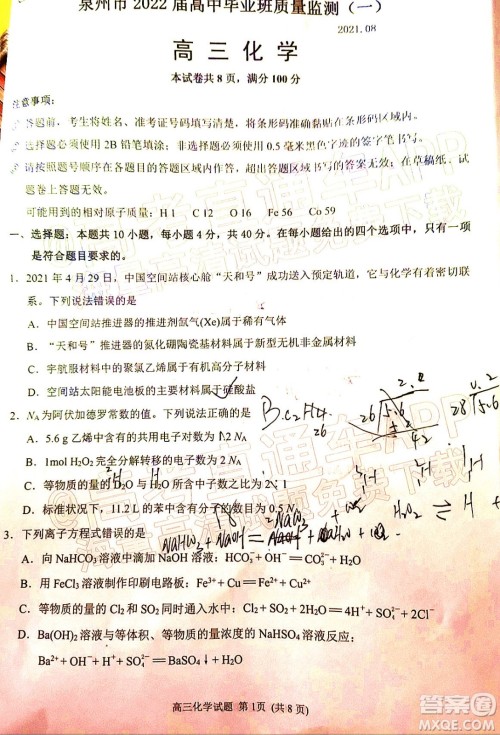 泉州市 2022 届高中毕业班质量监测（一）
2021.08
高三化学
本试卷共 8 页，满分 100 分
注意事项：
答题前，考生将姓名、准考证号码填写清楚，将条形码准确粘贴在条形码区域内。
选择题必须使用 2B 铅笔填涂；非选择题必须使用 0.5 毫米黑色字迹的签字笔书写。
请按照题号顺序在各题目的答题区域内作答，超出答题区域书写的答案无效；在草稿纸、试
题卷上答题无效。
可能用到的相对原子质量：H 1 C 12 O 16 Fe 56 Co 59
一、选择题：本大题共 10 小题，每小题 4 分，共 40 分。在每小题给出的四个选项中，只有一项
是符合题目要求的。
1．2021 年 4 月 29 日，中国空间站核心舱“天和号”成功送入预定轨道，它与化学有着密切联
系。下列说法错误的是
A．中国空间站推进器的推进剂氙气(Xe)属于稀有气体
B．“天和号”推进器的氮化硼陶瓷基材料属于新型无机非金属材料
C．宇航服材料中的聚氯乙烯属于有机高分子材料
D．空间站太阳能电池板的主要材料属于硅酸盐
2．NA 为阿伏加德罗常数的值。下列说法正确的是
A．5.6 g 乙烯中含有的共用电子对数为 2 NA
B．1mol H₂O₂ 完全分解转移的电子数为 2 NA
D．标准状况下，11.2 L 的苯中含分子数为 0.5 NA
3．下列离子方程式错误的是
A．向 NaHCO₃ 溶液中滴加 NaOH 溶液：HCO₃⁻ + OH⁻ = CO₃²⁻ + H₂O
B．用 FeCl₃ 溶液制作印刷电路板：Fe³⁺ + Cu = Fe²⁺ + Cu²⁺
C．等物质的量 Cl₂ 和 SO₂ 同时通入水中：Cl₂ + SO₂ + 2H₂O = 4H⁺ + SO₄²⁻ + 2Cl⁻
D．Ba(OH)₂ 溶液与等体积、等物质的量浓度的 NaHSO₄ 溶液反应：
Ba²⁺ + OH⁻ + H⁺ + SO₄²⁻ = BaSO₄↓ + H₂O
高三化学试题 第 1页 (共 8 页)
答案圈
MXQE.COM